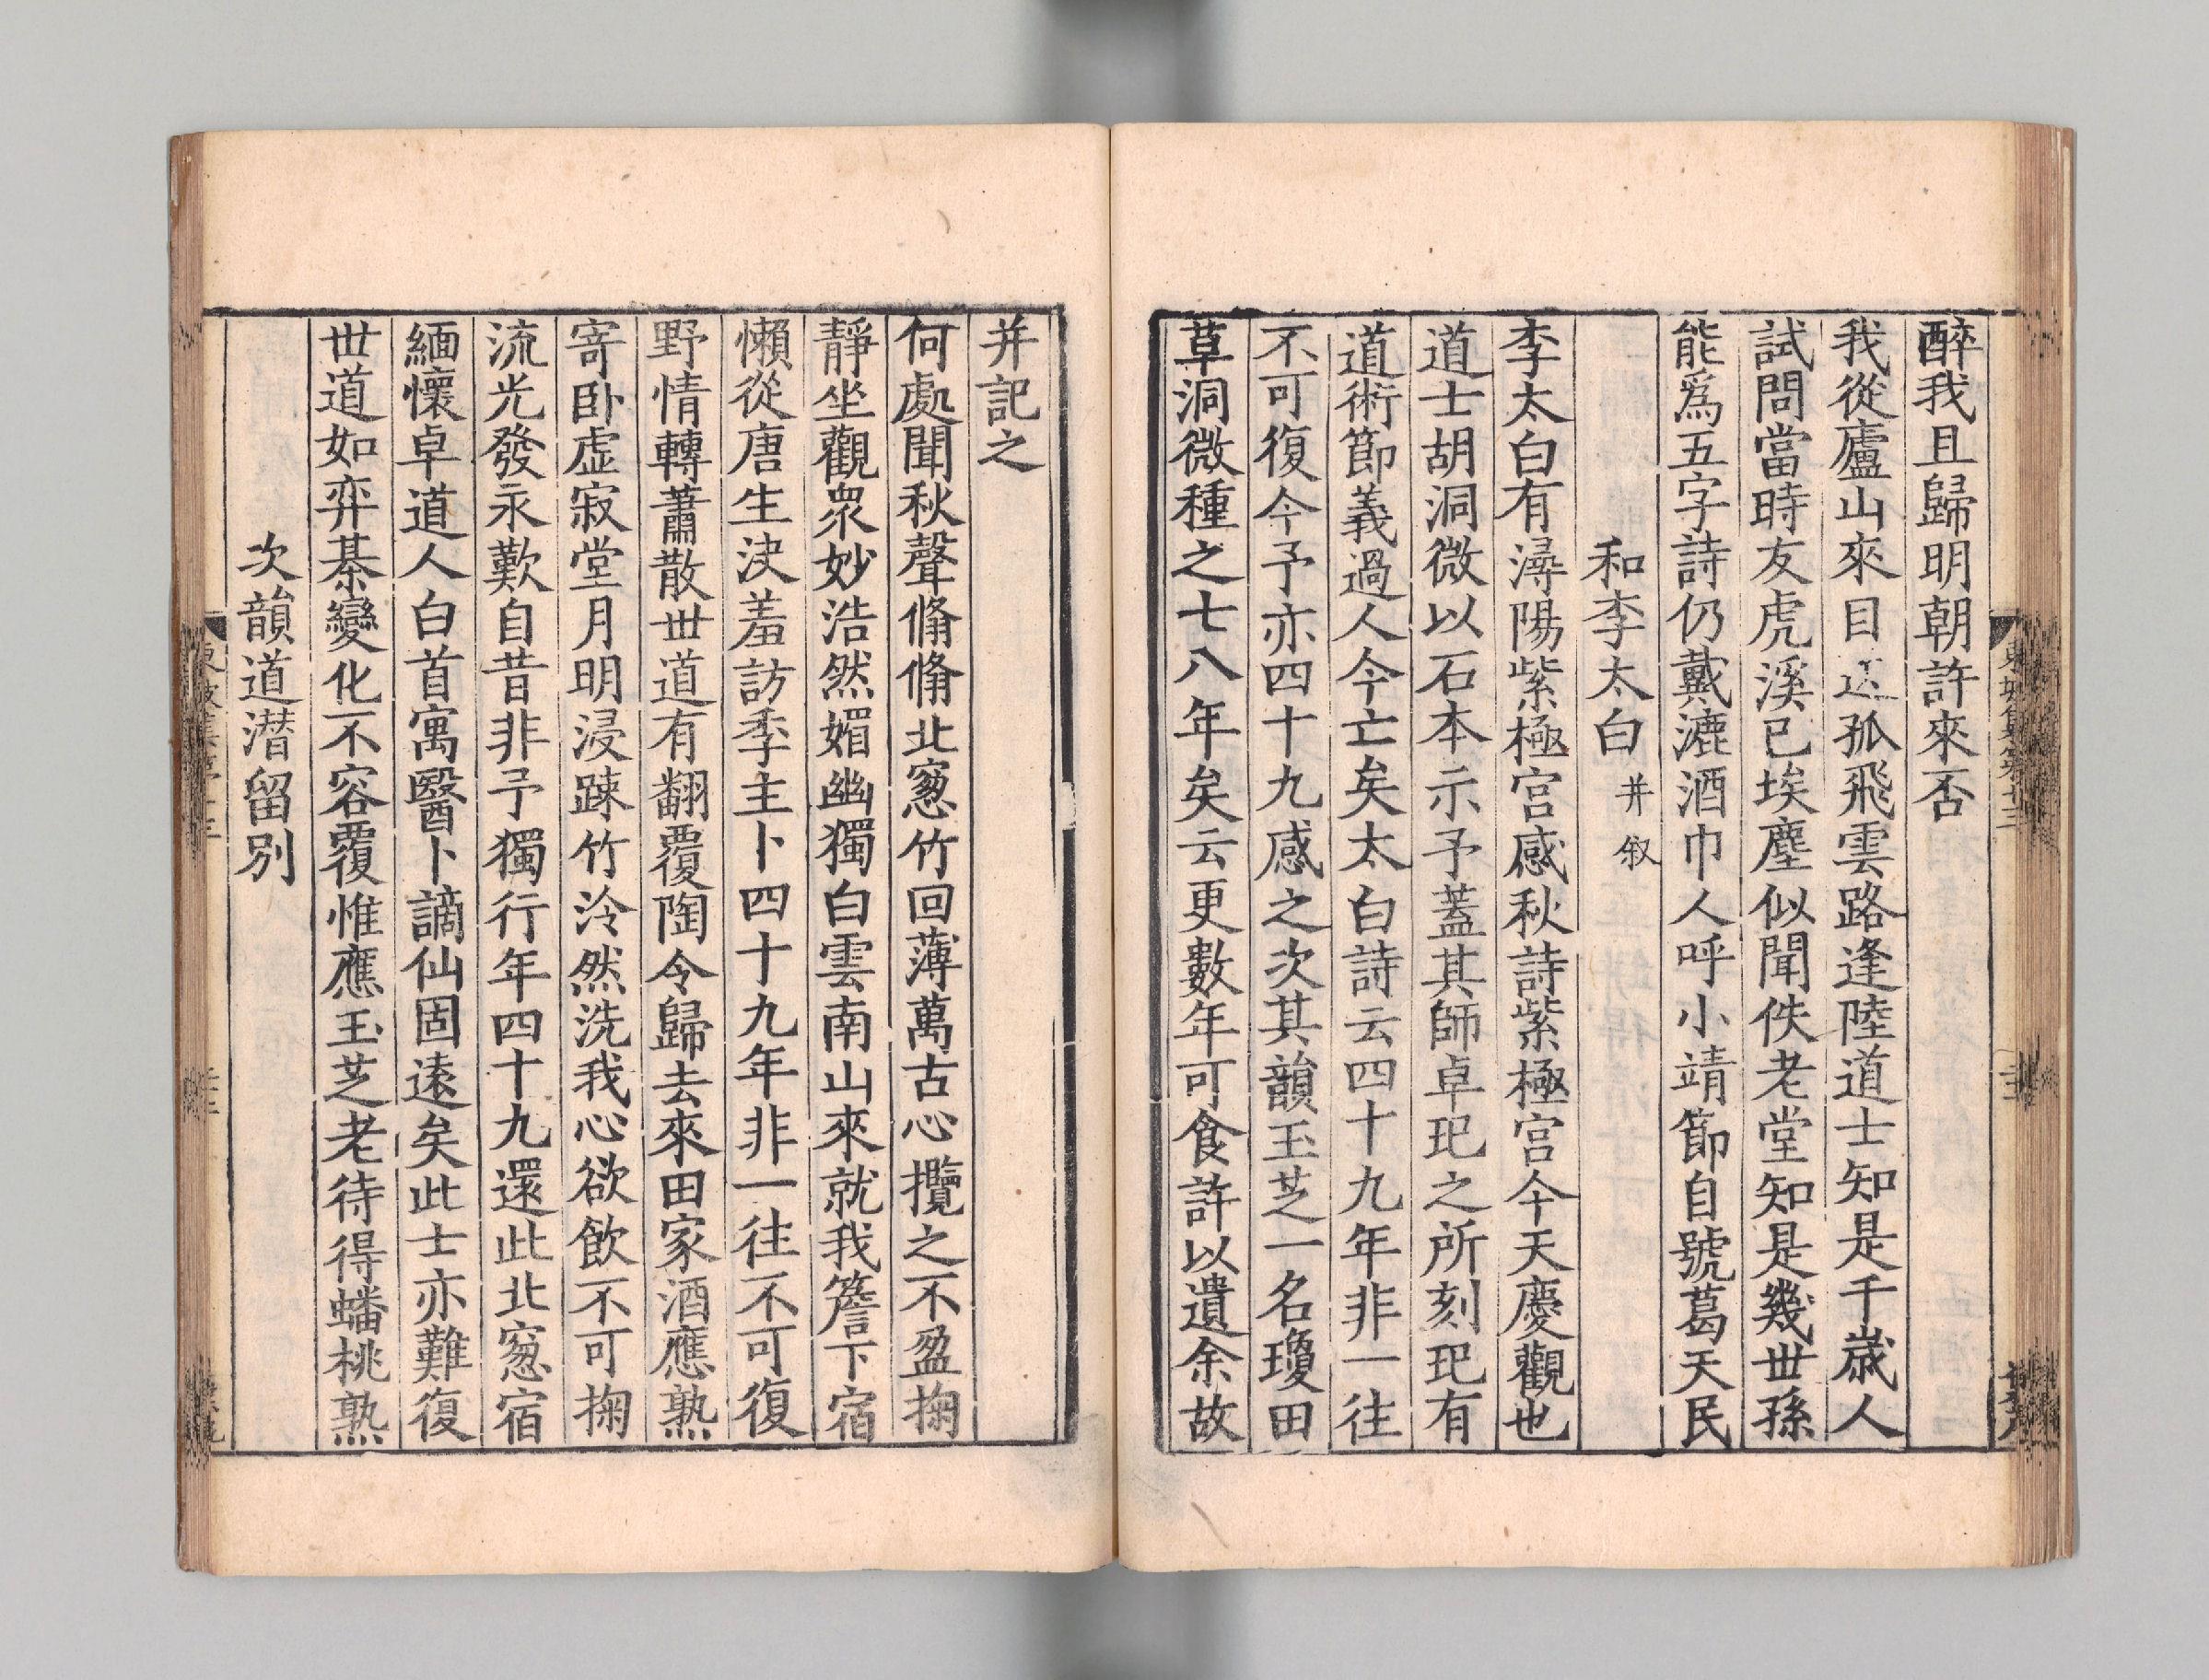 醉我且歸明朝許來否
我從廬山來目送孤飛雲路逢陸道士知是千歲人
試問當時友虎溪已埃塵似聞佚老堂知是幾世孫
能爲五字詩仍戴漉酒巾人呼小靖節自號葛天民
和李太白并叙
李太白有潯陽紫極宮感秋詩紫極宮今天慶觀也
道士胡洞微以石本示予蓋其師卓玘之所刻玘有
道術節義過人今亡矣太白詩云四十九年非一往
不可復今予亦四十九感之次其韻玉芝一名瓊田
草洞微種之七八年矣云更數年可食許以遺余故
并記之
何處聞秋聲翛翛北窻竹回薄萬古心攬之不盈掬
靜坐觀衆妙浩然媚幽獨白雲南山來就我簷下宿
懶從唐生決羞訪季主卜四十九年非一往不可復
野情轉蕭散世道有翻覆陶令歸去來田家酒應熟
寄卧虛寂堂月明浸踈竹泠然洗我心欲飲不可掬
流光發永歎自昔非予獨行年四十九還此北窻宿
緬懷卓道人白首寓醫卜謫仙固遠矣此士亦難復
世道如弈棊變化不容覆惟應玉芝老待得蟠桃熟
次韻道潛留別